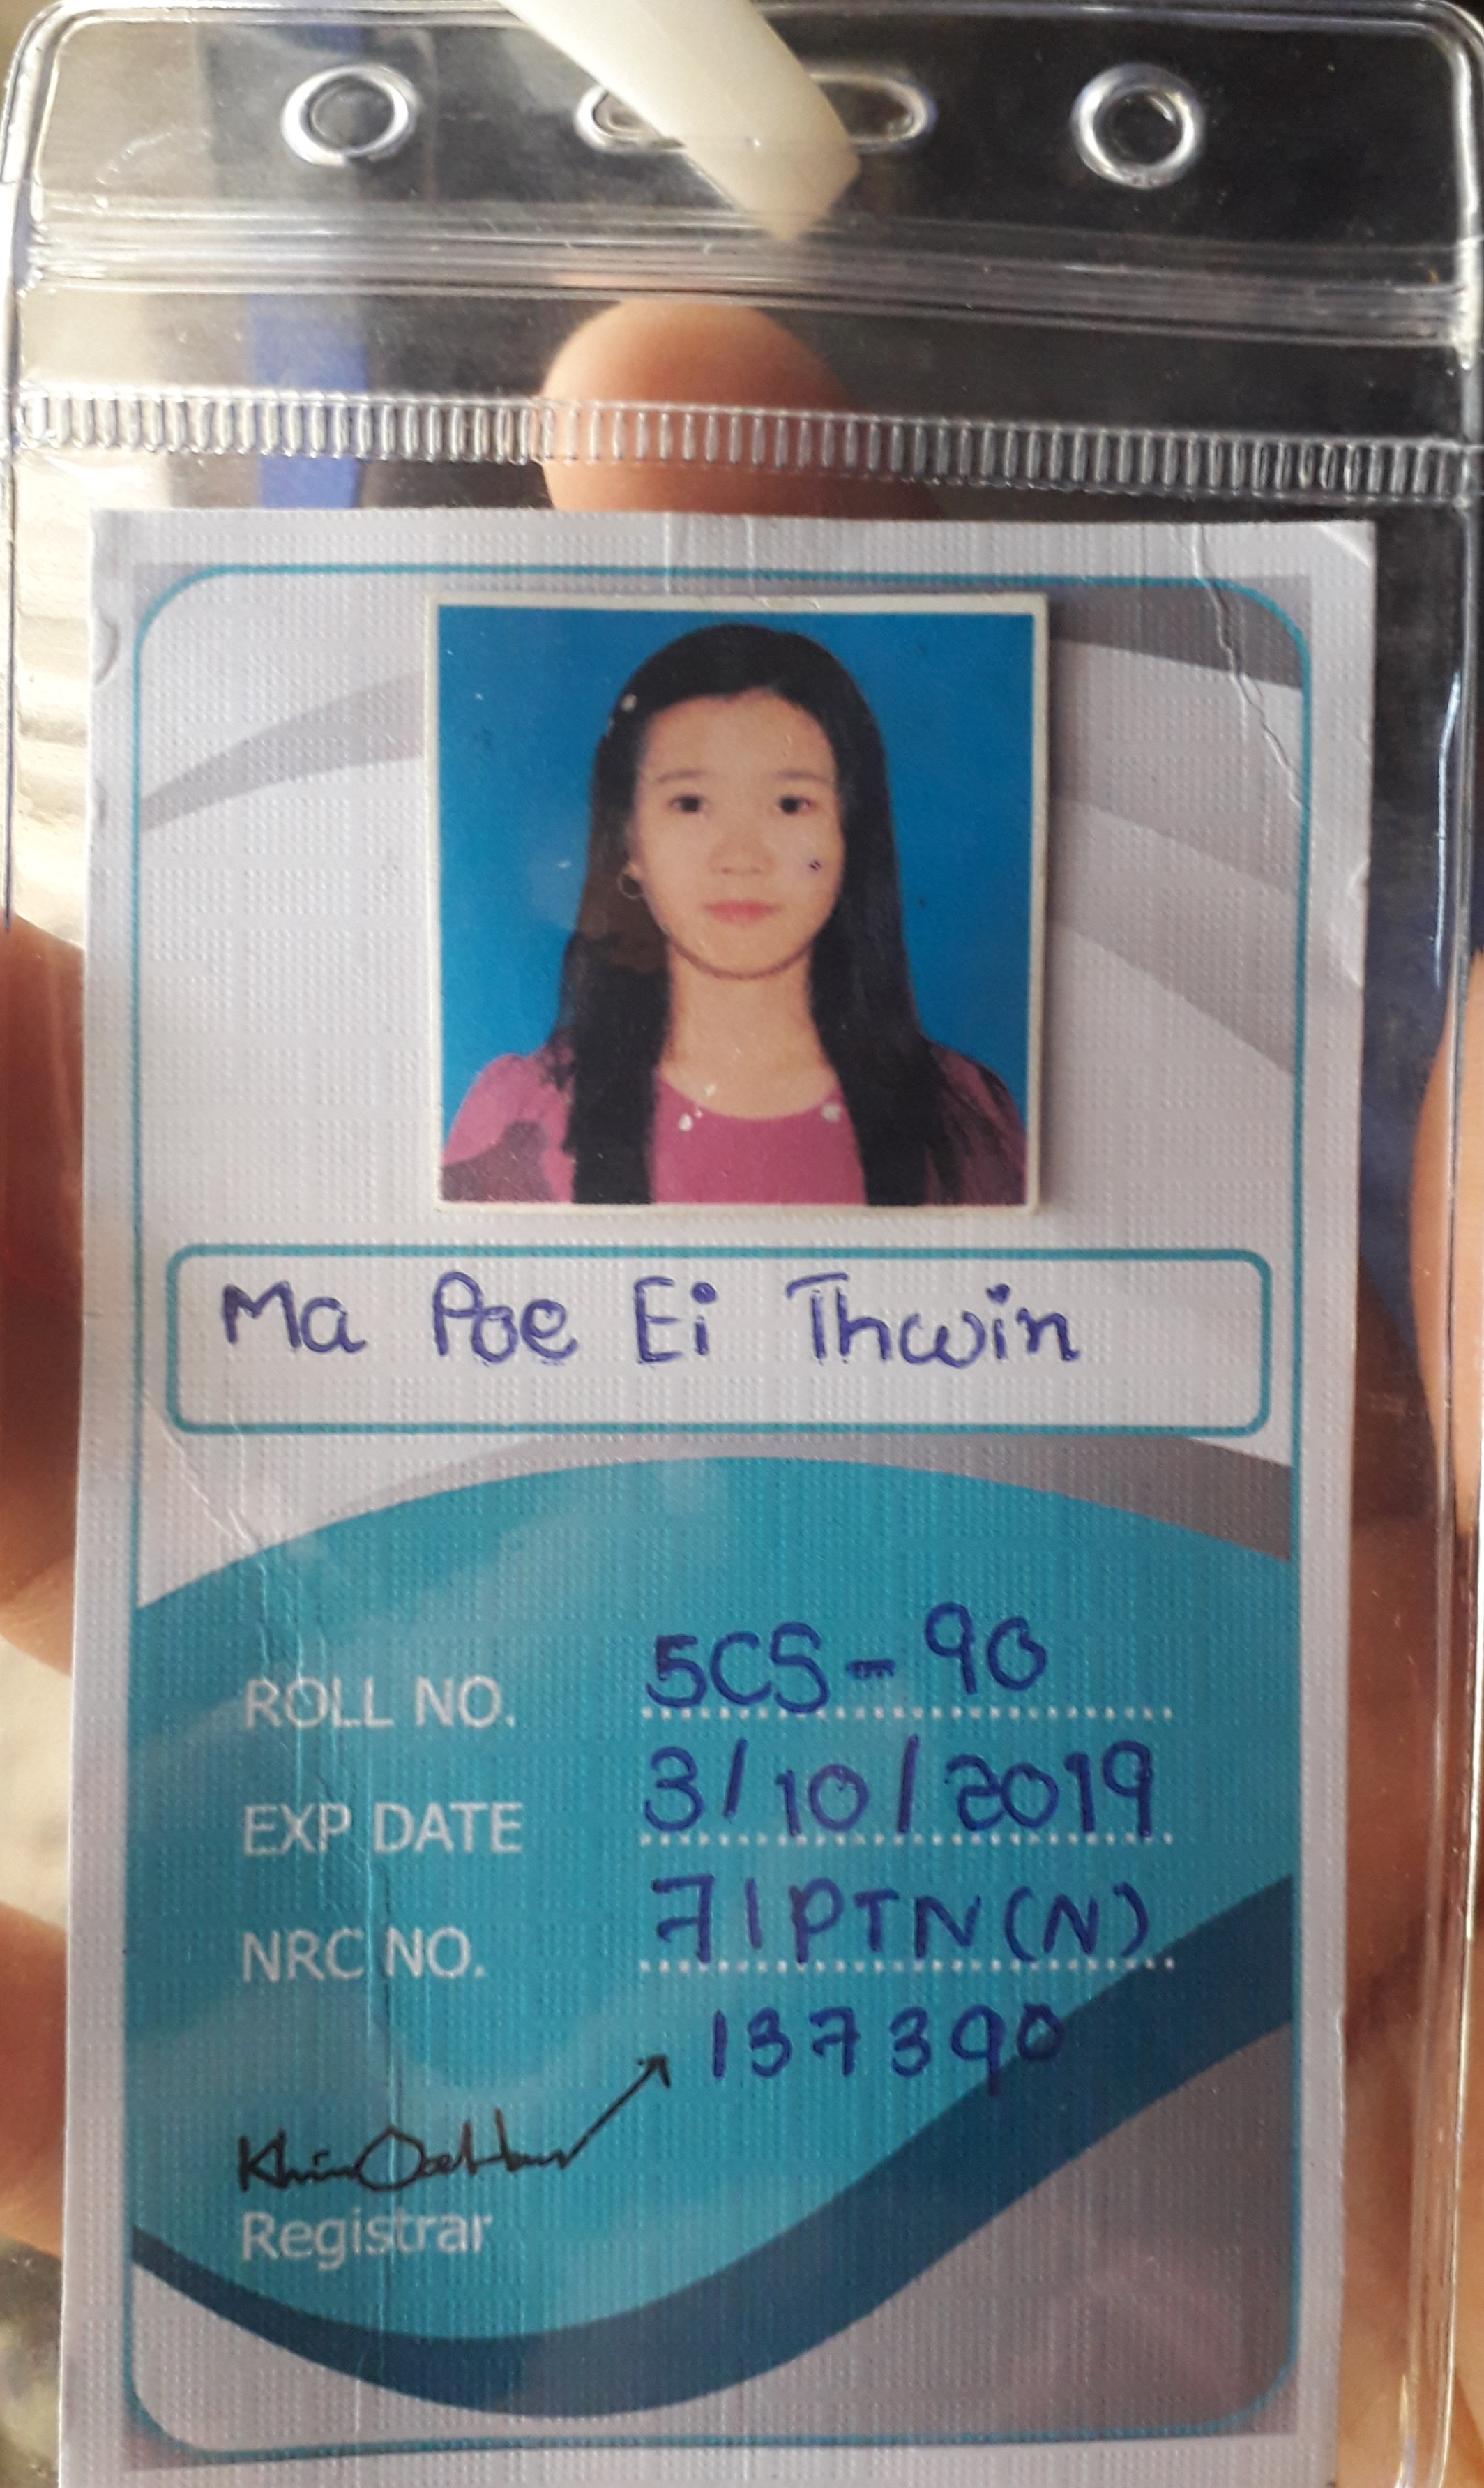 Ma Poe Ei Thwin
ROLL NO. 5CS-90
EXP DATE 3/10/2019
NRC NO. 7/PTN(N)
137390
Registrar